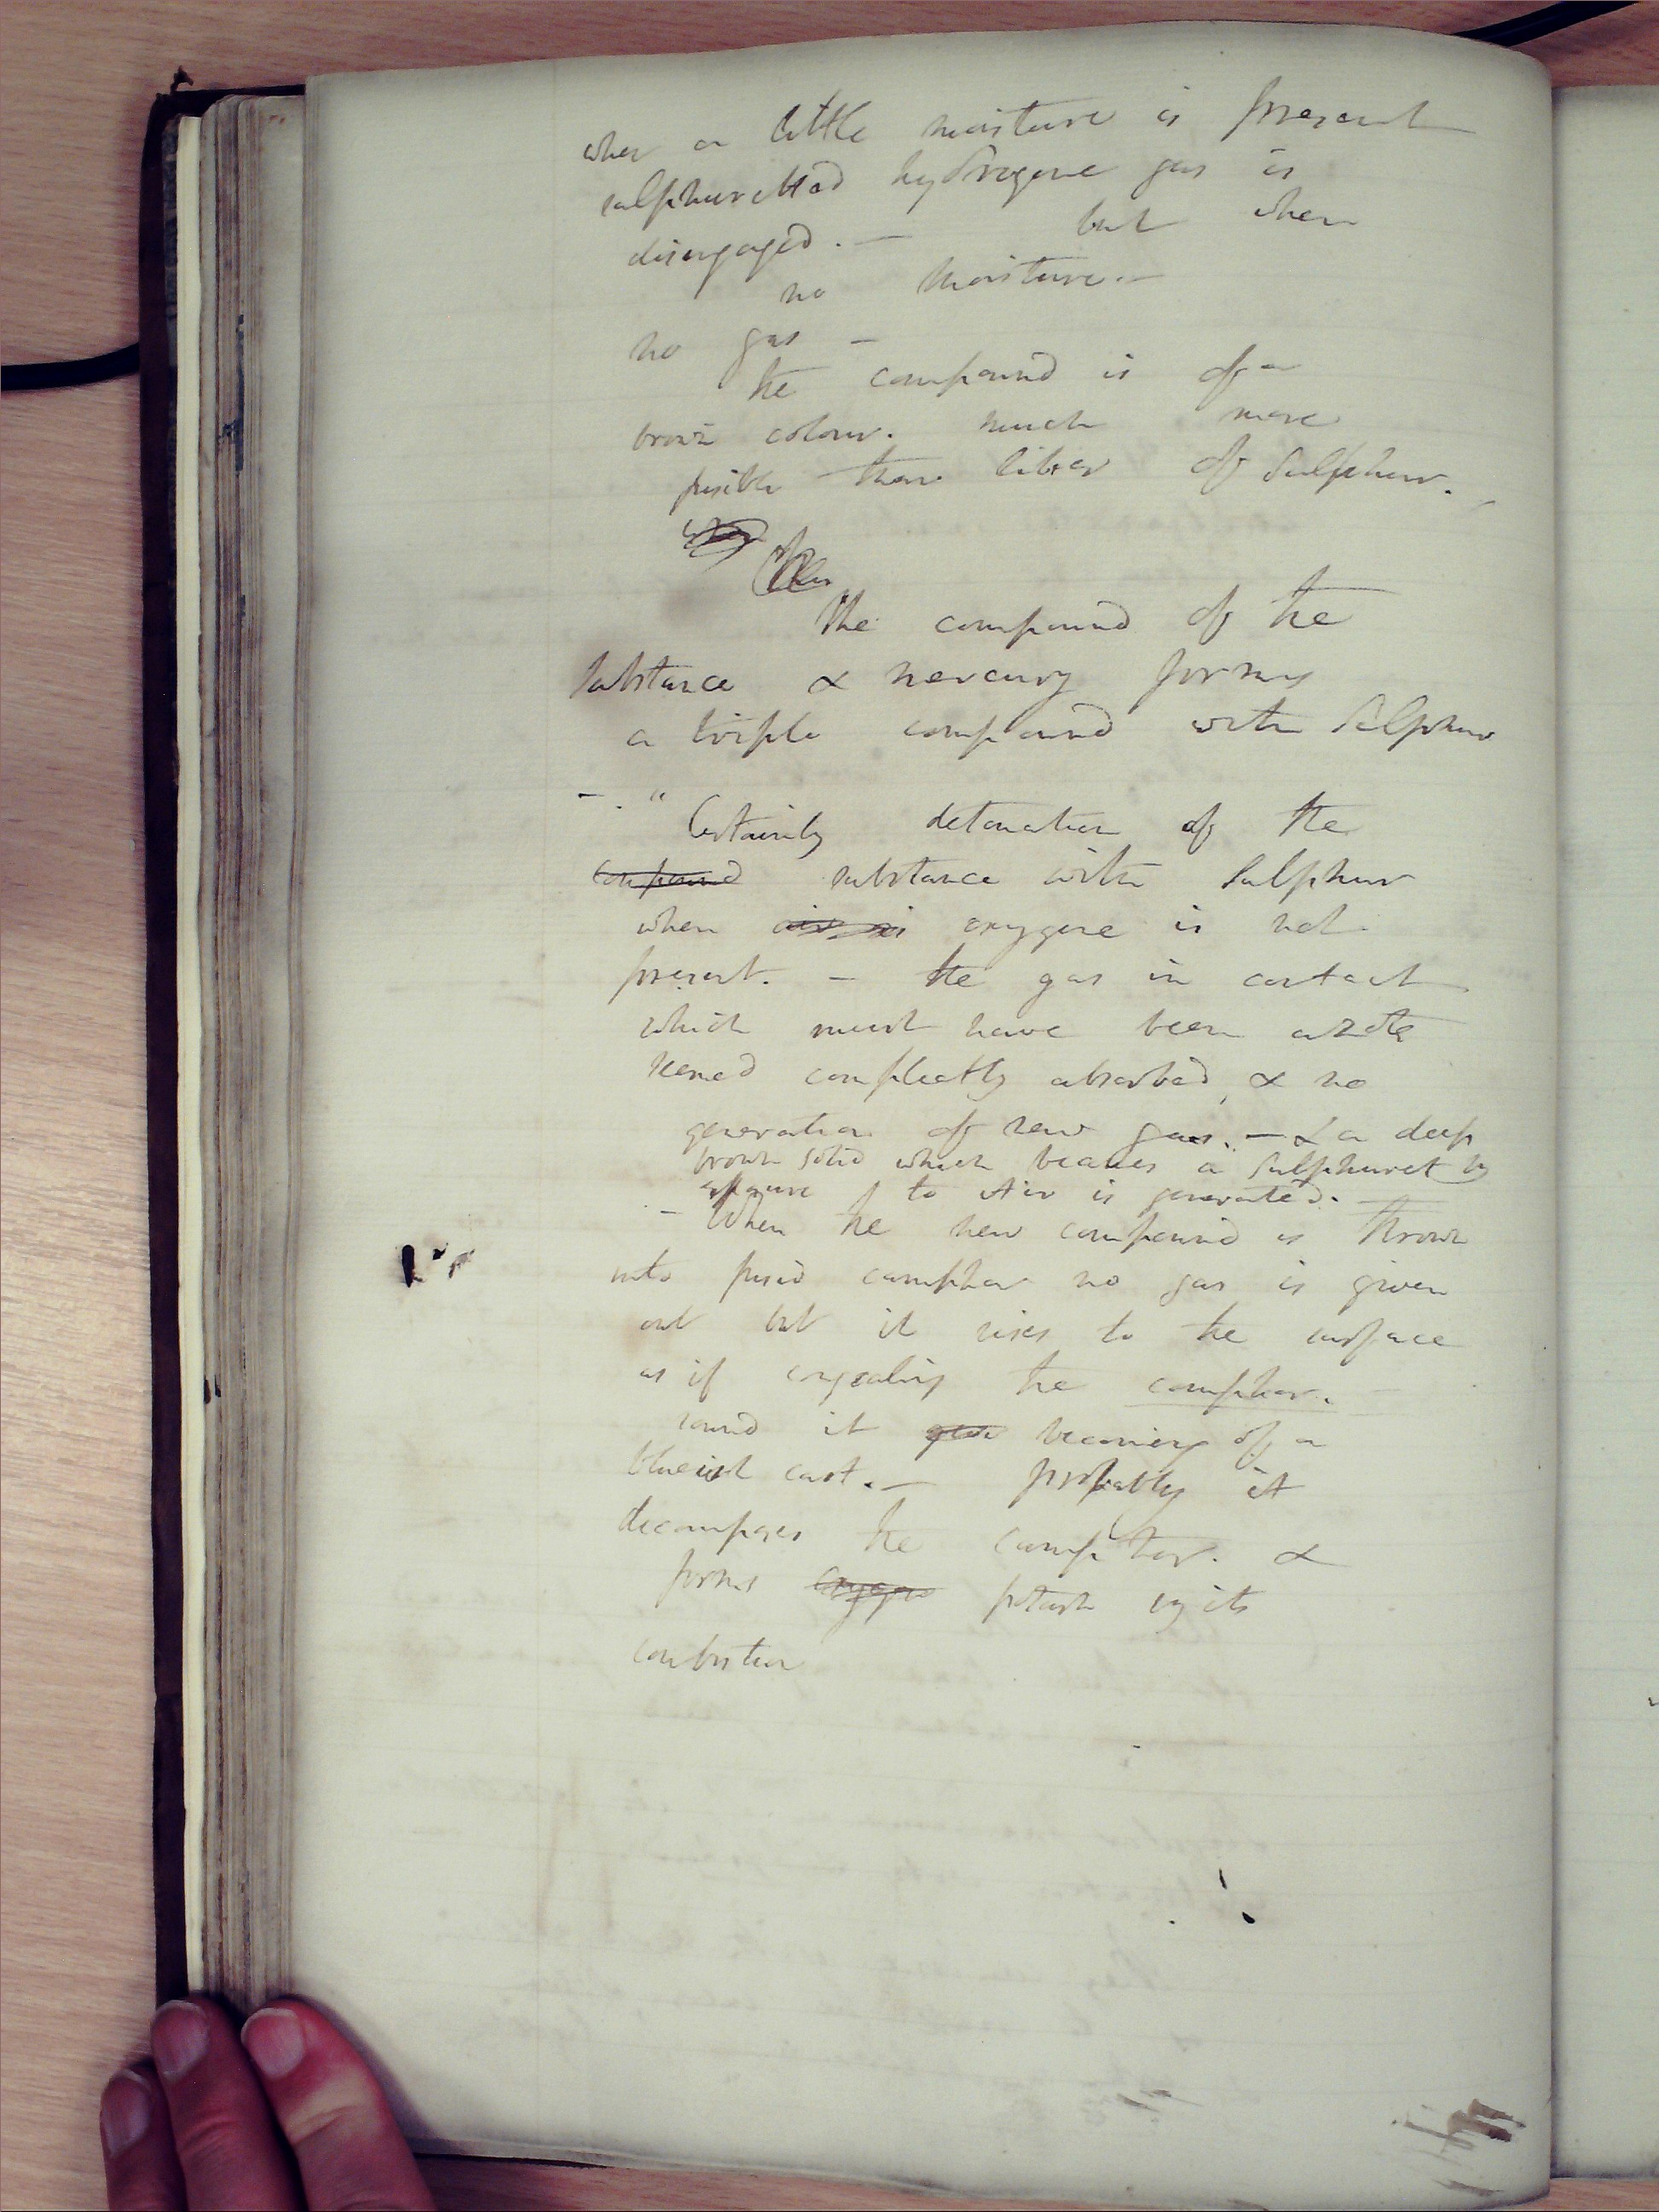 when a little moisture is present
sulphuretted hydrogene gas is
disengaged. — but when
no moisture. —
no gas —
the compound is of a
brown colour. much more
fusible than liver of Sulphur.
The
The compound of the
substance & mercury forms
a triple compound with Sulphur
— . " Certainly detonation of the
compound substance with Sulphur
when air is oxygene is not
present. — the gas in contact
which must have been azote
seemed compleatly absorbed, & no
generation of new gas. — & a deep
brown solid which becomes a Sulphuret by
exposure to Air is generated. —
— When the new compound is thrown
into fused camphor no gas is given
out but it rises to the surface
as if congealing the camphor.
round it becoming of a
blueish cast. — probably it
decomposes the camphor. &
forms oxygen potash by its
combustion